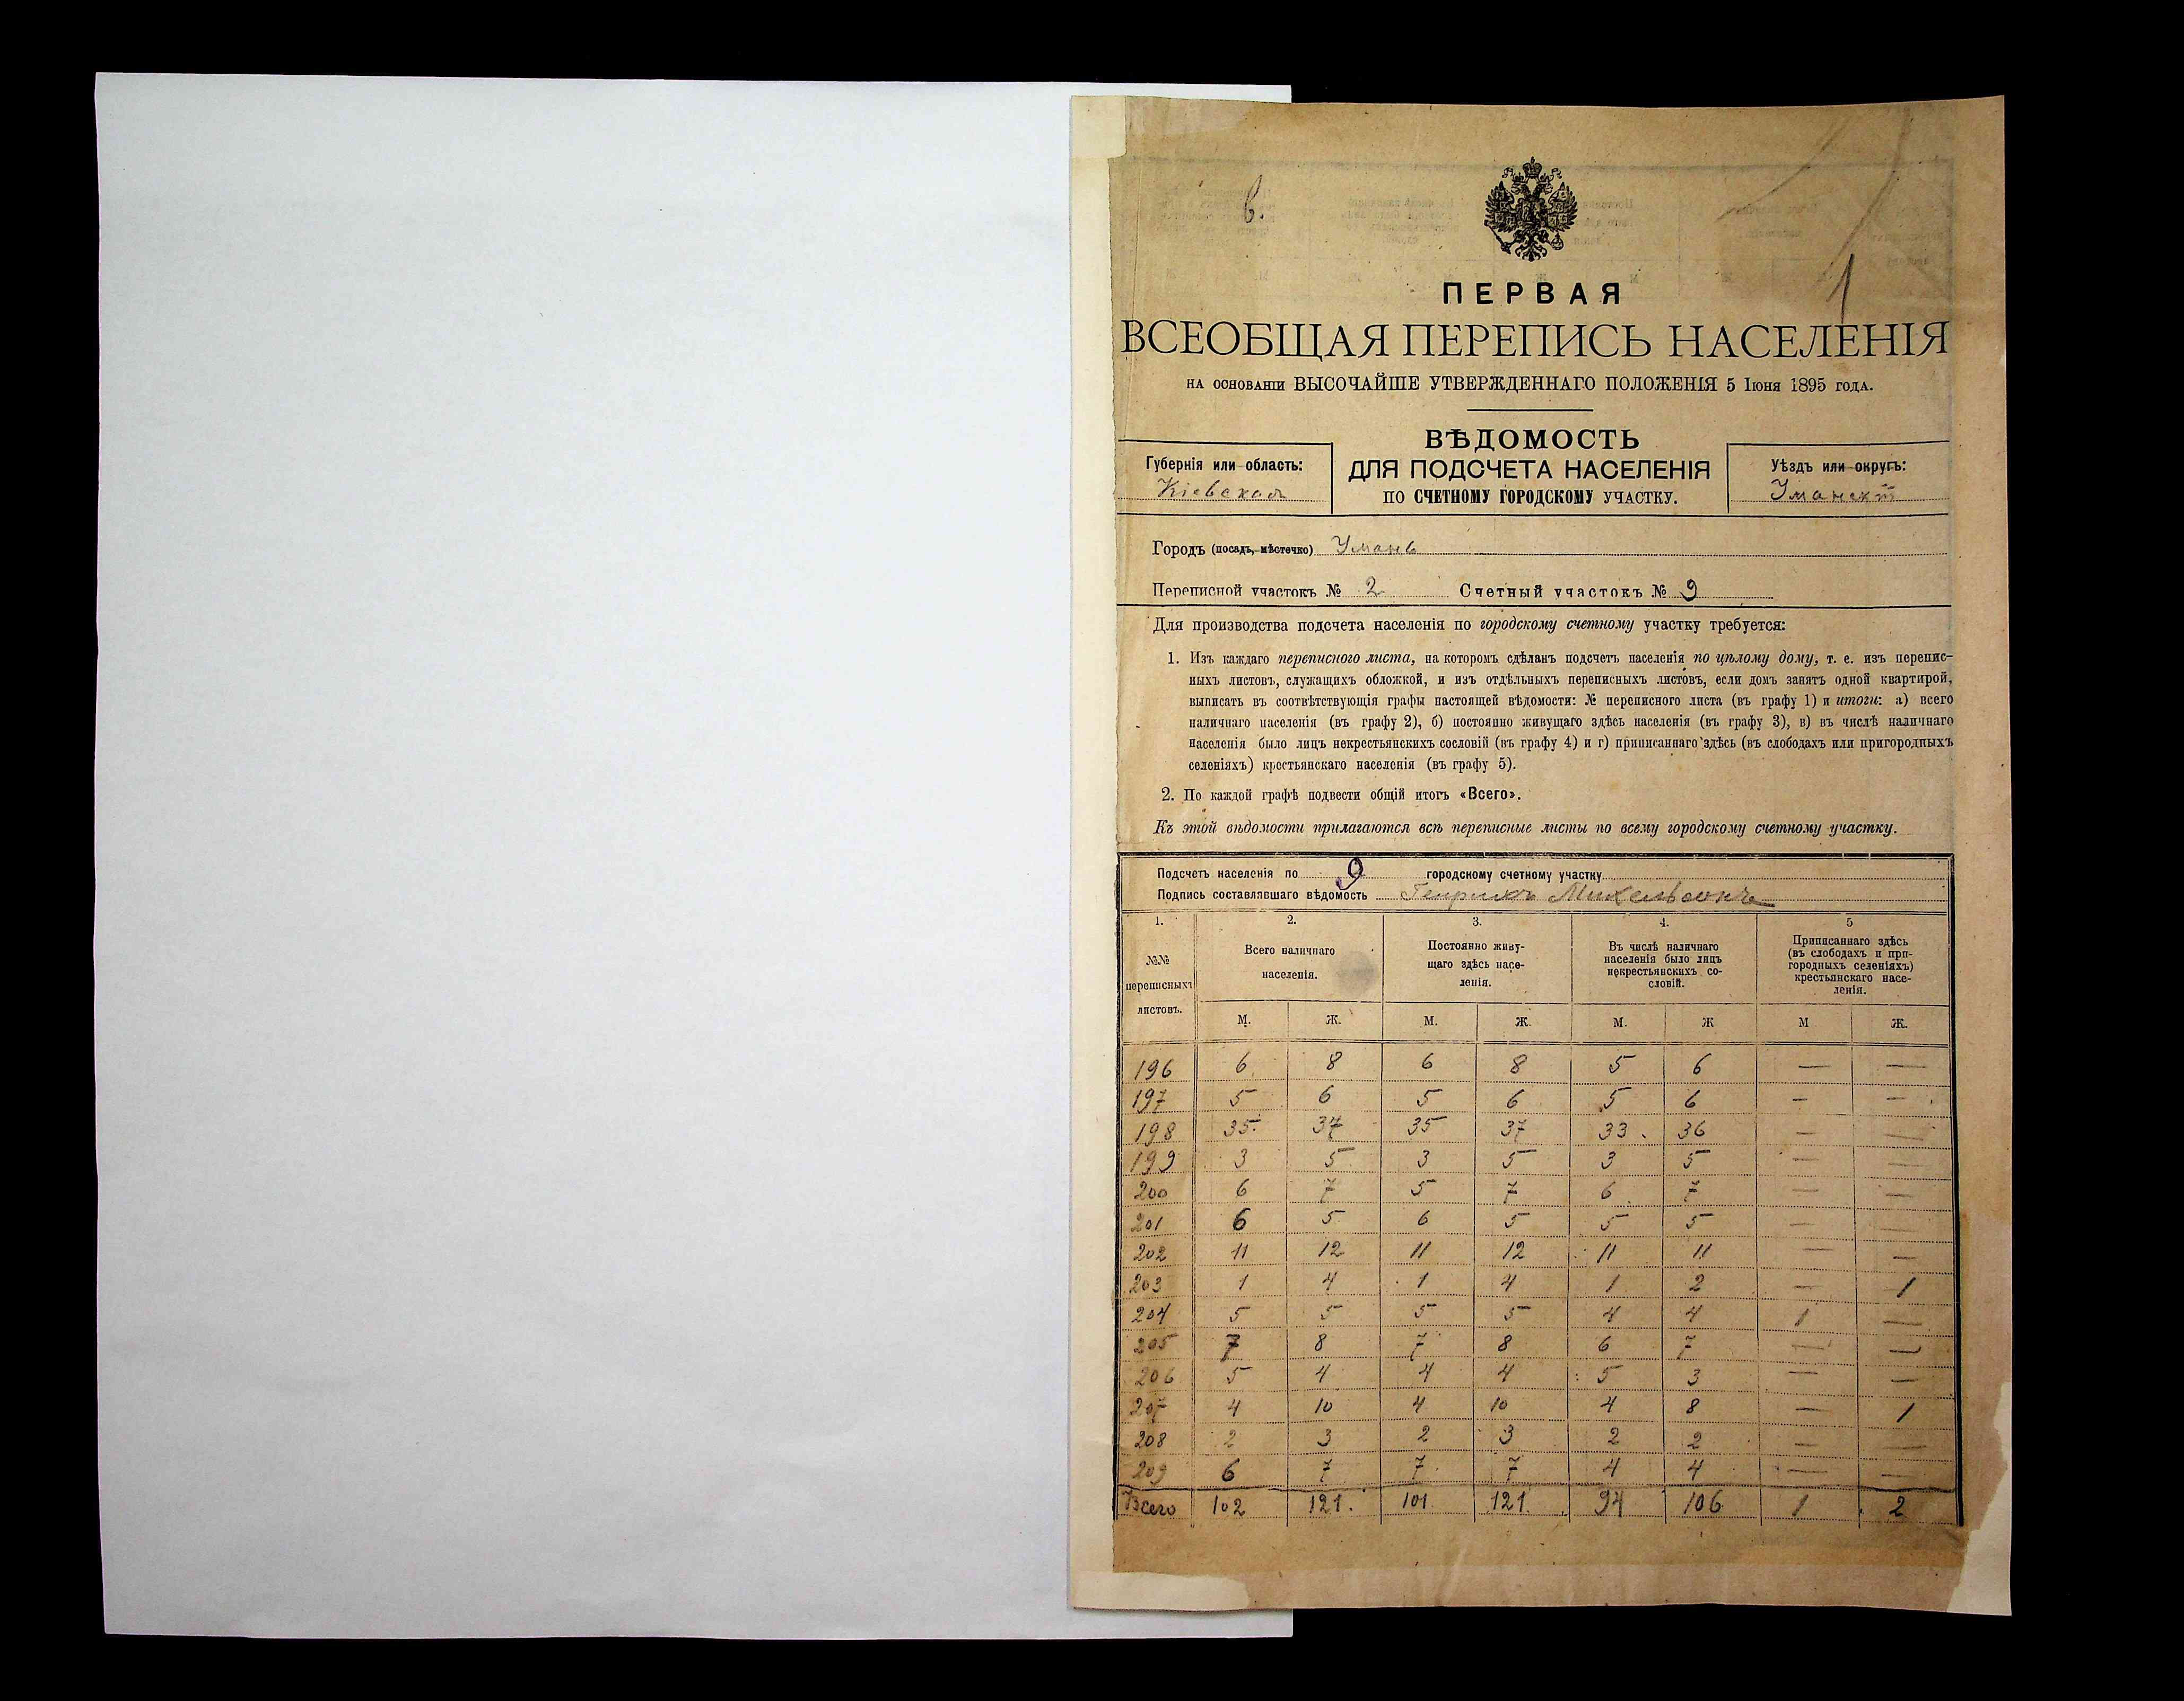 в.
1
ПЕРВАЯ
ВСЕОБЩАЯ ПЕРЕПИСЬ НАСЕЛЕНІЯ
НА ОСНОВАНІИ ВЫСОЧАЙШЕ УТВЕРЖДЕННАГО ПОЛОЖЕНІЯ 5 Іюня 1895 ГОДА.
ВѢДОМОСТЬ
ДЛЯ ПОДСЧЕТА НАСЕЛЕНІЯ
ПО СЧЕТНОМУ ГОРОДСКОМУ УЧАСТКУ.
Губернія или область:
Кіевская
Уѣздъ или округъ:
Уманскій
Городъ (посадъ, мѣстечко) Умань
Переписной участокъ № 2 Счетный участокъ № 9
Для производства подсчета населенія по городскому счетному участку требуется:
1. Изъ каждаго переписного листа, на которомъ сдѣланъ подсчетъ населенія по цѣлому дому, т. е. изъ перепис-
ныхъ листовъ, служащихъ обложкой, и изъ отдѣльныхъ переписныхъ листовъ, если домъ занятъ одной квартирой,
выписать въ соотвѣтствующія графы настоящей вѣдомости: № переписного листа (въ графу 1) и итоги: а) всего
наличнаго населенія (въ графу 2), б) постоянно живущаго здѣсь населенія (въ графу 3), в) въ числѣ наличнаго
населенія было лицъ некрестьянскихъ сословій (въ графу 4) и г) приписаннаго здѣсь (въ слободахъ или пригородныхъ
селеніяхъ) крестьянскаго населенія (въ графу 5).
2. По каждой графѣ подвести общій итогъ «Всего».
Къ этой вѣдомости прилагаются всѣ переписные листы по всему городскому счетному участку.
Подсчетъ населенія по 9 городскому счетному участку
Подпись составлявшаго вѣдомость Генрихъ Михельсонъ
1. 2. 3. 4. 5
№№
переписныхъ
листовъ.
Всего наличнаго
населенія.
Постоянно живу-
щаго здѣсь насе-
ленія.
Въ числѣ наличнаго
населенія было лицъ
некрестьянскихъ со-
словій.
Приписаннаго здѣсь
(въ слободахъ и при-
городныхъ селеніяхъ)
крестьянскаго насе-
ленія.
М. Ж. М. Ж. М. Ж М Ж.
196 6 8 6 8 5 6 — —
197 5 6 5 6 5 6 — —
198 35 37 35 37 33 36 — —
199 3 5 3 5 3 5 — —
200 6 7 5 7 6 7 — —
201 6 5 6 5 5 5 — —
202 11 12 11 12 11 11 — —
203 1 4 1 4 1 2 — 1
204 5 5 5 5 4 4 1 —
205 7 8 7 8 6 7 — —
206 5 4 4 4 5 3 — —
207 4 10 4 10 4 8 — 1
208 2 3 2 3 2 2 — —
209 6 7 7 7 4 4 — —
Всего 102 121. 101 121. 94 106 1 2